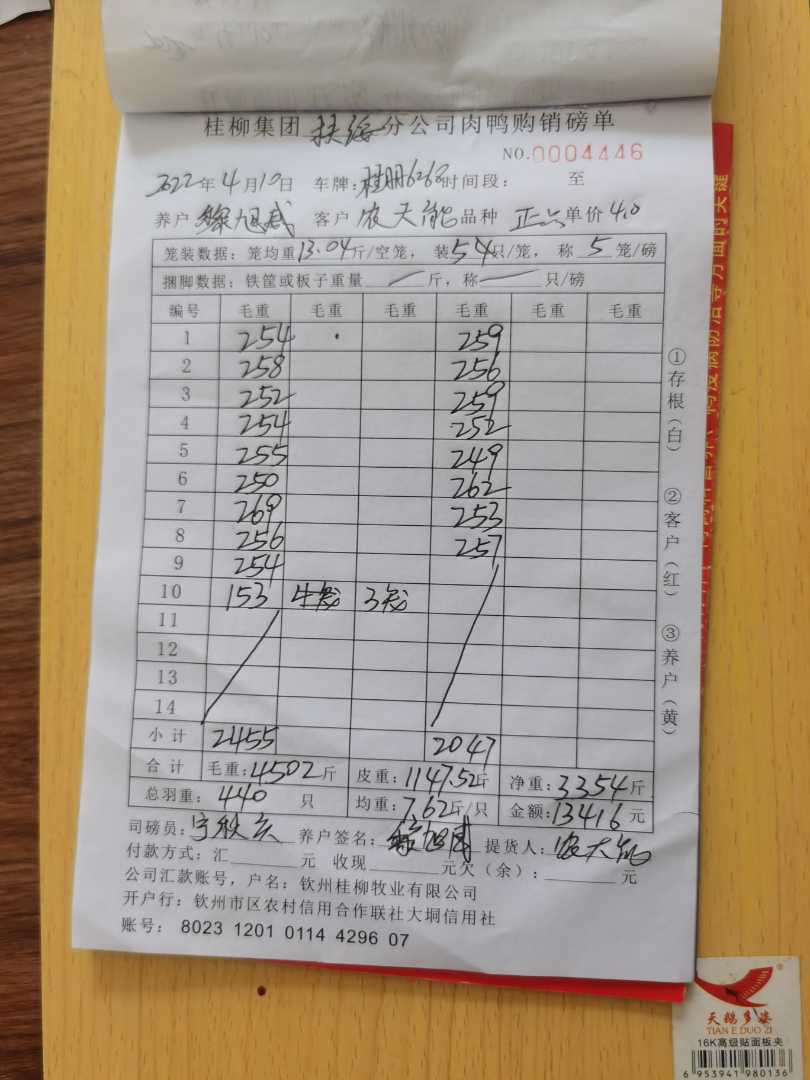 桂柳集团 扶绥 分公司肉鸭购销磅单
NO.0004446
2022年4月10日 车牌: 桂 6268 时间段: 至
养户 旭 客户 农天能 品种 正品 单价 4.0
笼装数据: 笼均重13.04斤/空笼, 装54只/笼, 称5笼/磅
捆脚数据: 铁筐或板子重量 — 斤, 称 — 只/磅
编号 毛重 毛重 毛重 毛重 毛重 毛重
1 254 259
2 258 256
3 252 259
4 254 252
5 255 249
6 250 262
7 269 253
8 256 257
9 254
10 153 3
11
12
13
14
小计 2455 2047
合计 毛重: 4502斤 皮重: 1147.52斤 净重: 3354斤
总羽重: 440 只 均重: 7.62斤/只 金额: 13416元
司磅员: 养户签名: 旭 提货人: 农天能
付款方式: 汇 元 收现 元欠(余): 元
公司汇款账号, 户名: 钦州桂柳牧业有限公司
开户行: 钦州市区农村信用合作联社大垌信用社
账号: 8023 1201 0114 4296 07
①存根(白) ②客户(红) ③养户(黄)
天鹅多姿
TIAN E DUO ZI
16K高级贴面板夹
6 953941 980136